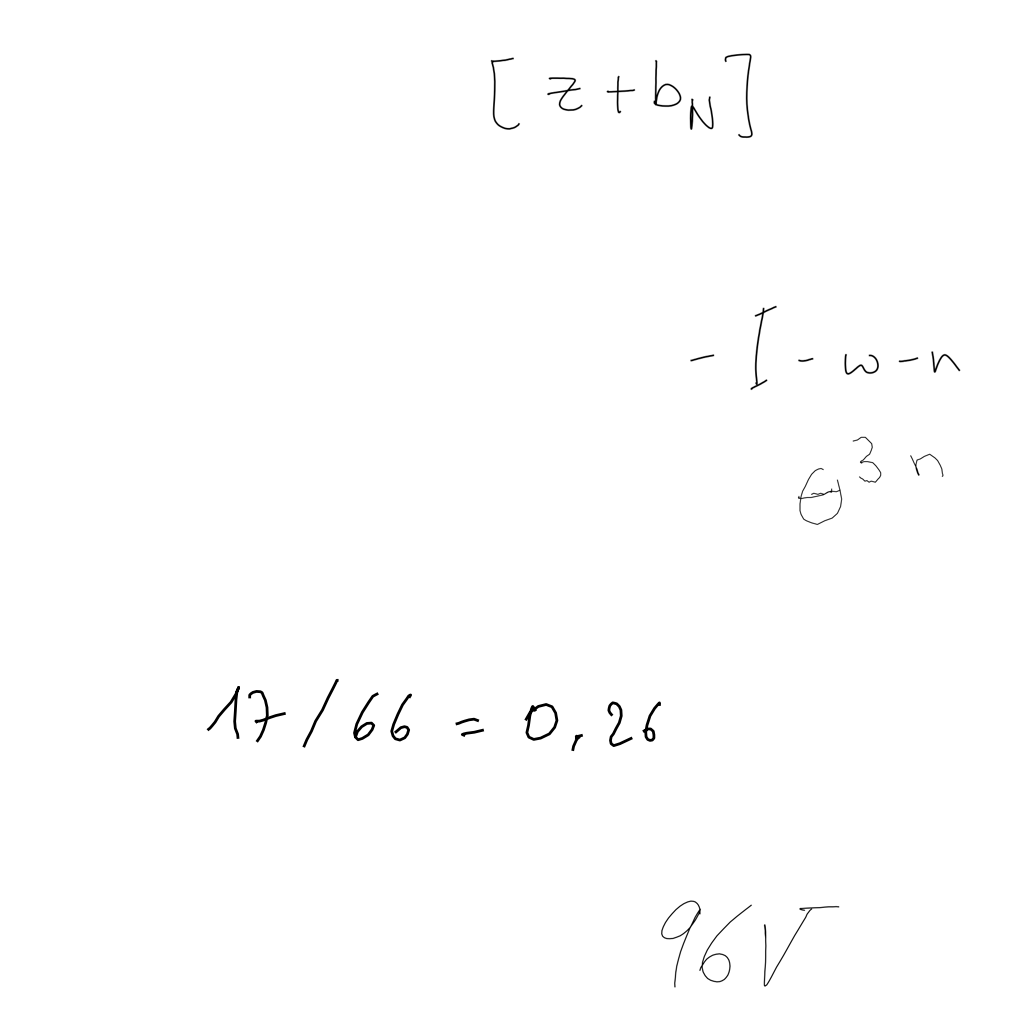 [z+b_N]
-I-w-n
θ^{3n}
17/66=0.26
96V